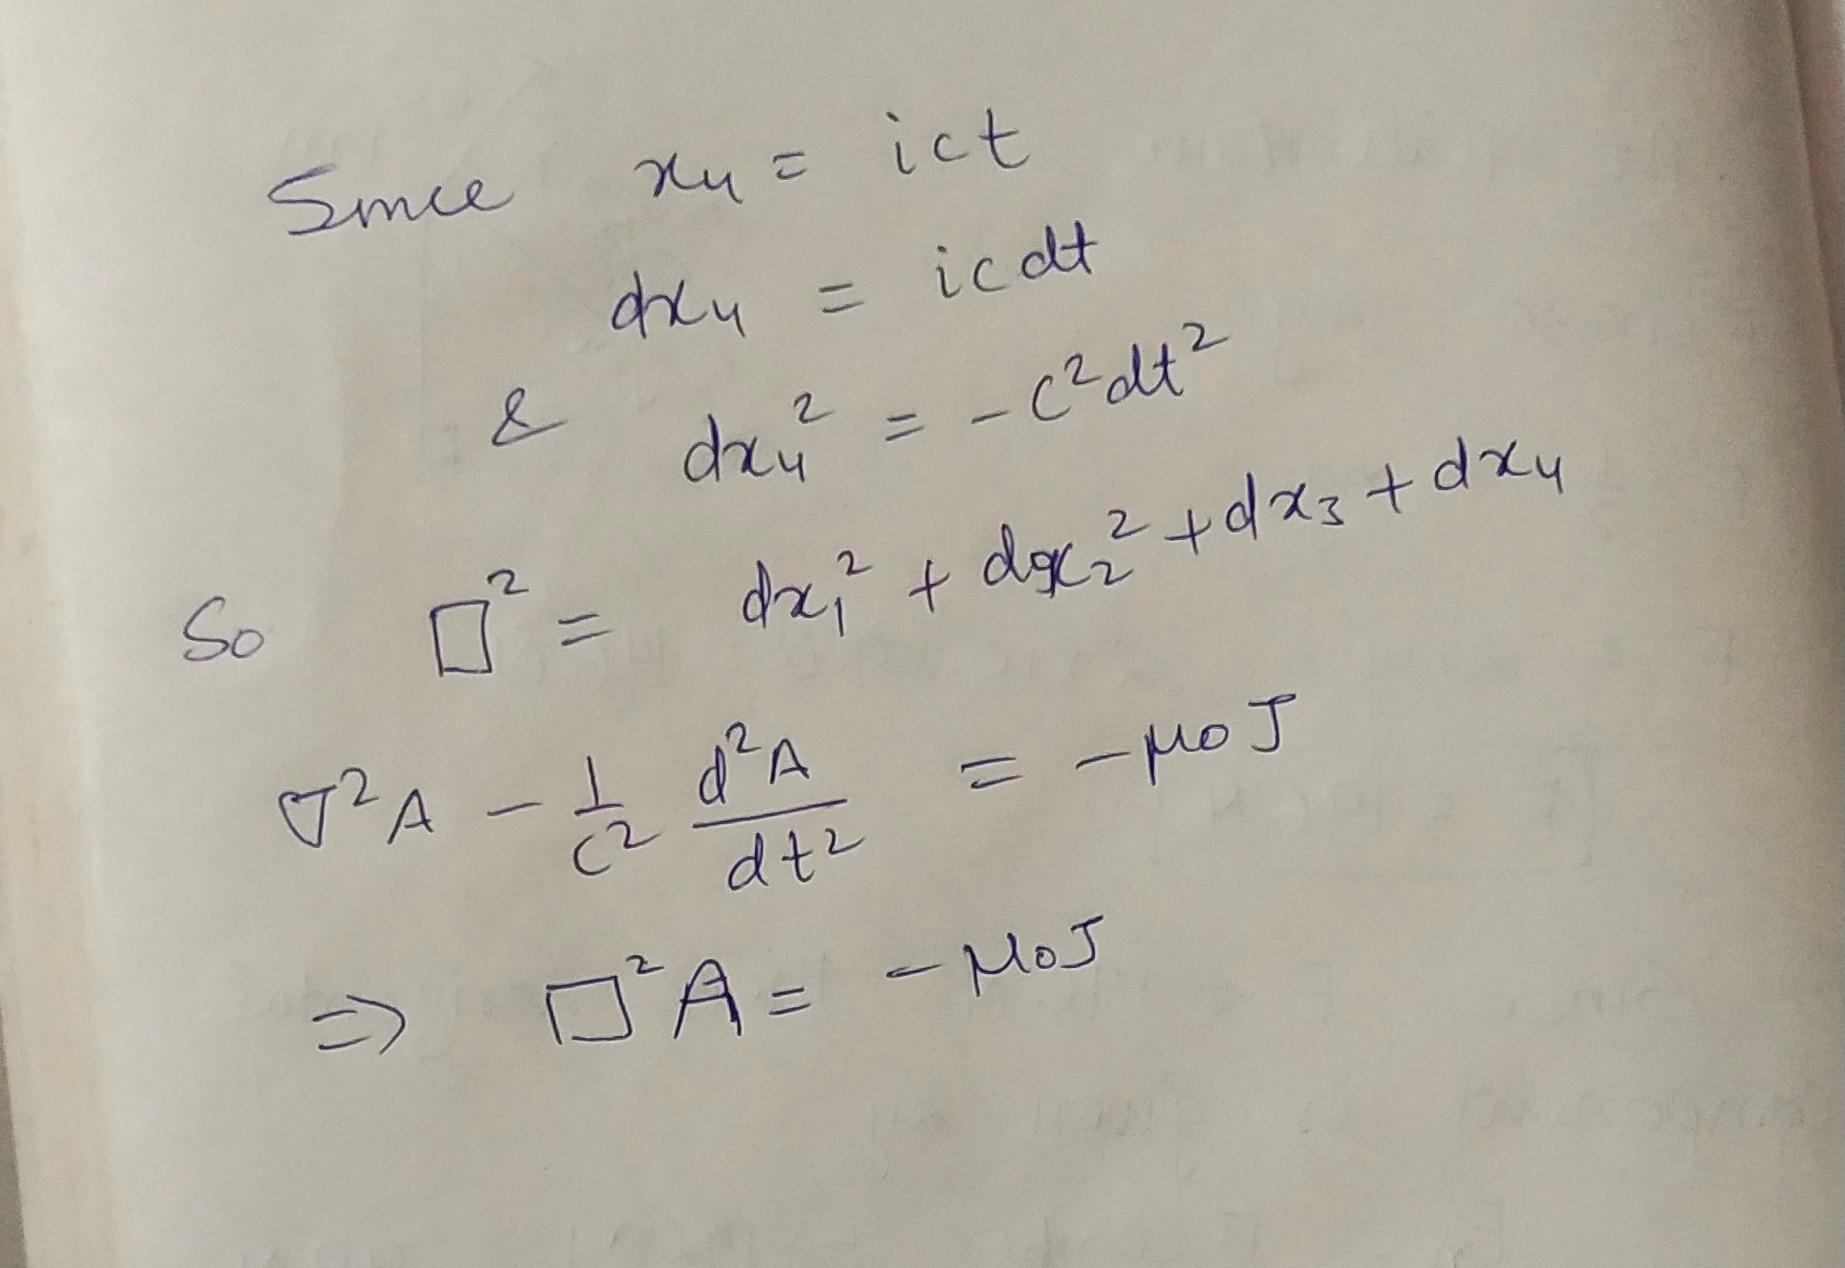 Since x₄ = ict
dx₄ = icdt
& dx₄² = -c²dt²
So □² = dx₁² + dx₂² + dx₃ + dx₄
∇²A - 1/c² d²A/dt² = -μ₀J
⇒ □²A = -μ₀J